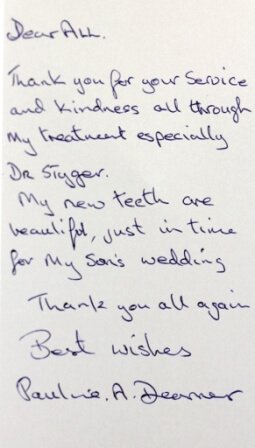 Dear ALL.
Thank you for your Service
and kindness all through
My treatment especially
DR Stygger.
My new teeth are
beautiful, just in time
for My Son's wedding
Thank you all again
Best wishes
Pauline. A. Dearner